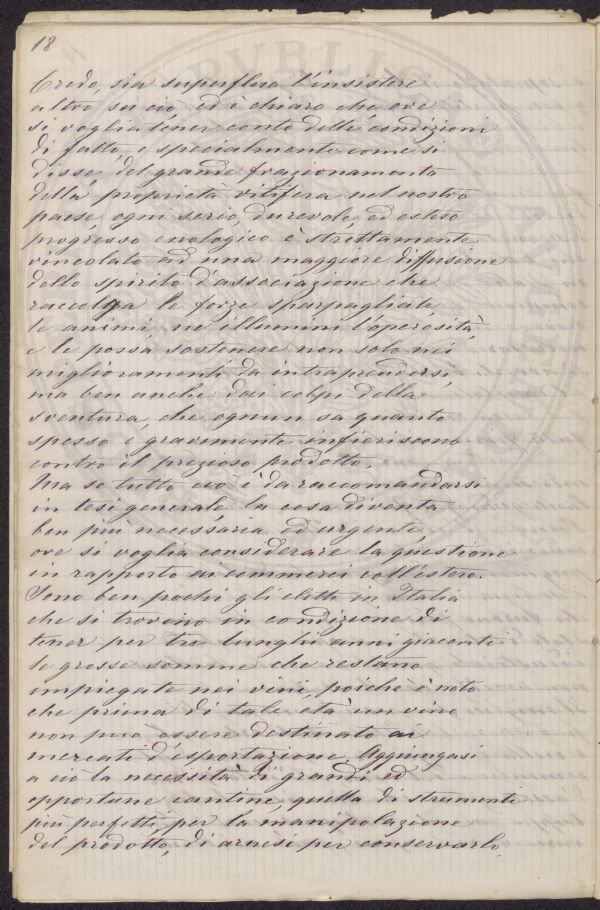 18
Credo, sia superfluo l'insistere
altro su ciò, ed è chiaro che ove
si voglia tener conto delle condizioni
di fatto, e specialmente come si
disse, del grande frazionamento
della proprietà vitifera nel nostro
paese, ogni serio, durevole, ed esteso
progresso enologico è strettamente
vincolato ad una maggiore diffusione
dello spirito d'associazione che
raccolga le forze sparpagliate,
le animi, ne illumini l'operosità,
e le possa sostenere non solo nei
miglioramenti da intraprendersi,
ma ben anche dai colpi della
sventura, che ognun sa quanto
spesso e gravemente infieriscono
contro il prezioso prodotto.
Ma se tutto ciò è da raccomandarsi
in tesi generale, la cosa diventa
ben più necessaria, ed urgente,
ove si voglia considerare la questione
in rapporto ai commerci coll'estero.
Sono ben pochi gli eletti in Italia
che si trovino in condizione di
tener per tre lunghi anni giacenti
le grosse somme che restano
impiegate nei vini, poichè è noto
che prima di tale età un vino
non può essere destinato ai
mercati d'esportazione. Aggiungasi
a ciò la necessità di grandi ed
opportune cantine, quella di strumenti
più perfetti per la manipolazione
del prodotto, di arnesi per conservarlo,
PVBLIC